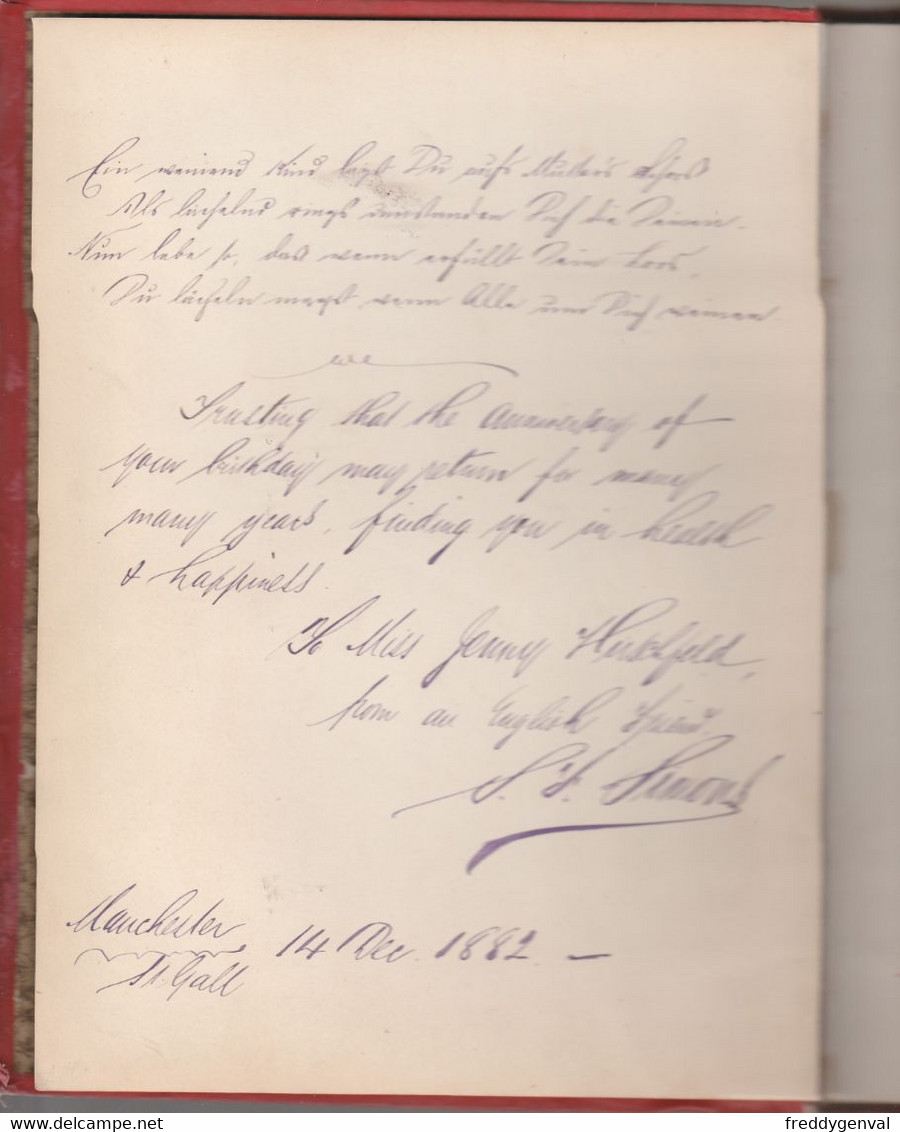 Ein weinend Kind lagst Du aufs Mutters Schoos
Als lächelnd rings umstanden Dich die Deinen.
Nun lebe so, das wenn erfüllt Dein Loos,
Du lächeln magst wenn Alle um Dich weinen
Trusting that the anniversary of
your birthday may return for many
many years, finding you in health
& happiness.
To Miss Jenny Hirschfeld,
from an English friend.
Simons
Manchester
St. Gall
14 Dec. 1882 —
delcampe.net
freddygenval